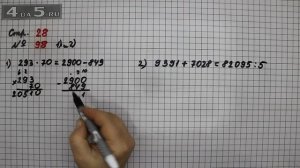 4АДУ5.RU
Стр. 28
№ 98 1) и 2)
1) 293 · 70 = 2900 - 849
2) 9391 + 7028 = 82095 : 5
× 293
70
20510
- 2900
849
1